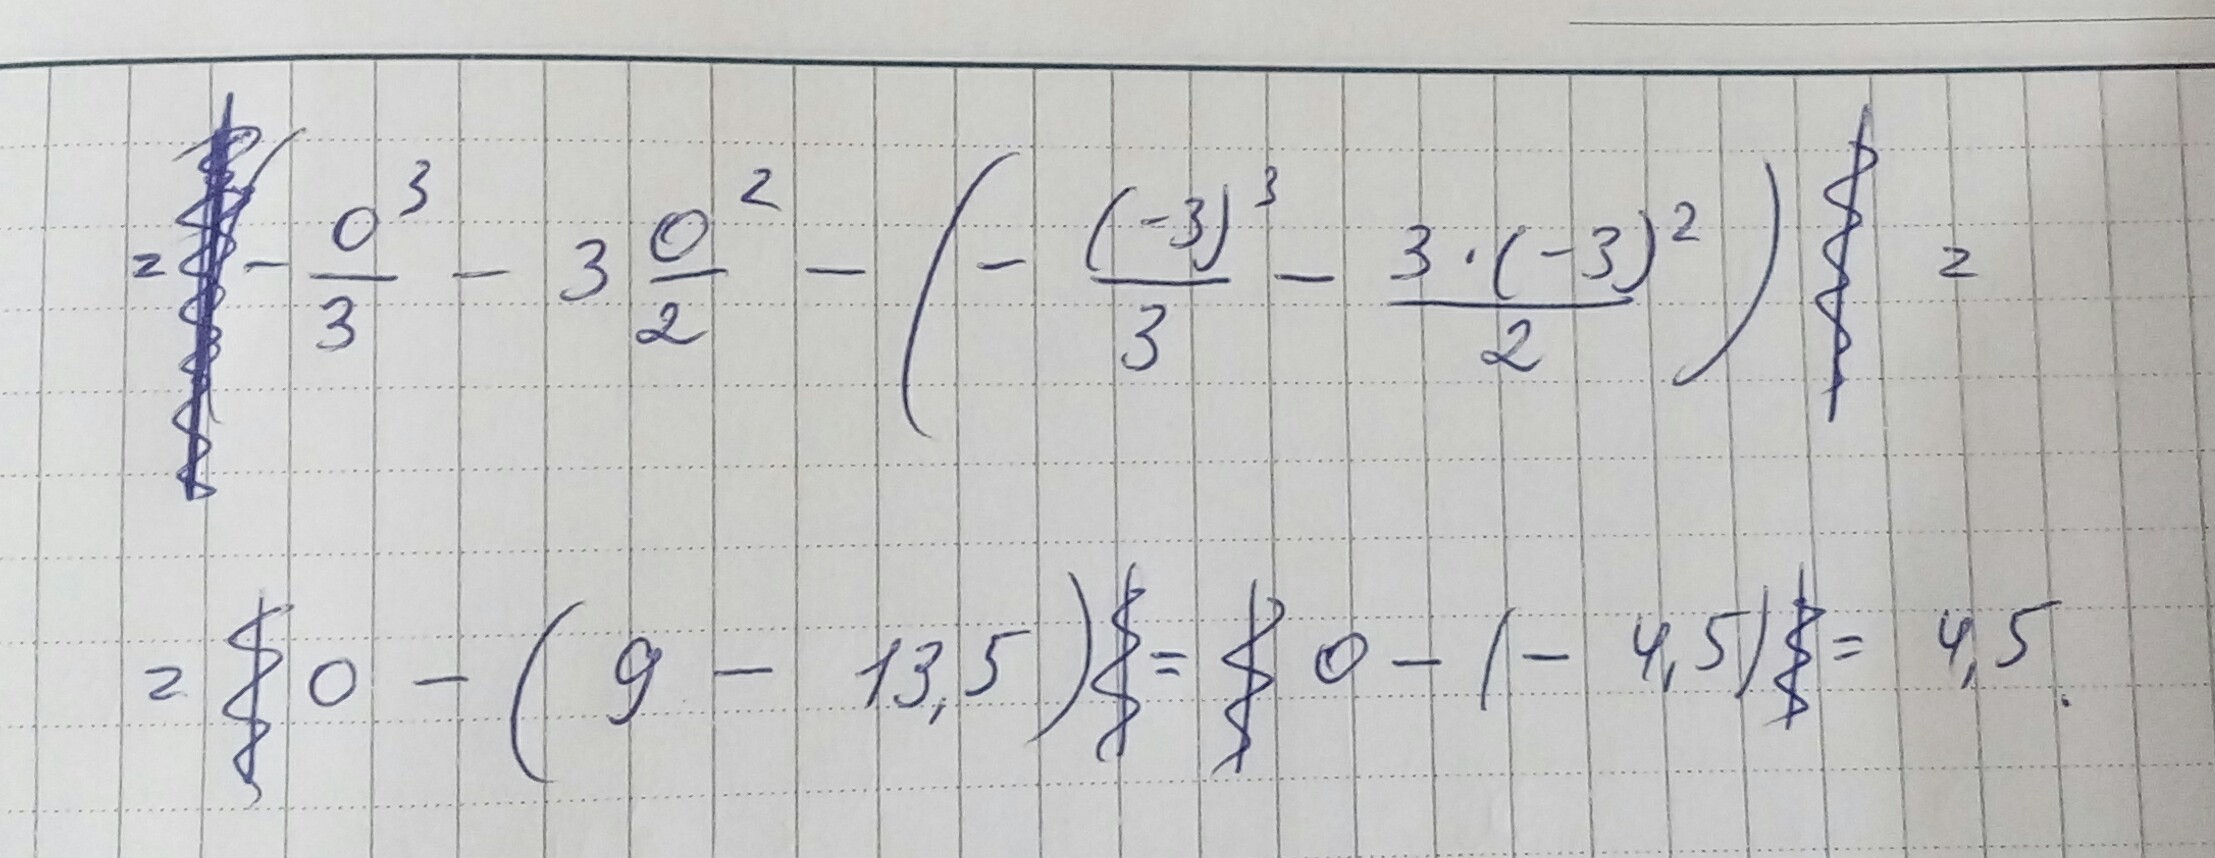 = - 0³/3 - 3 0²/2 - ( - (-3)³/3 - 3·(-3)²/2 ) =
= 0 - ( 9 - 13,5 ) = 0 - ( - 4,5 ) = 4,5.